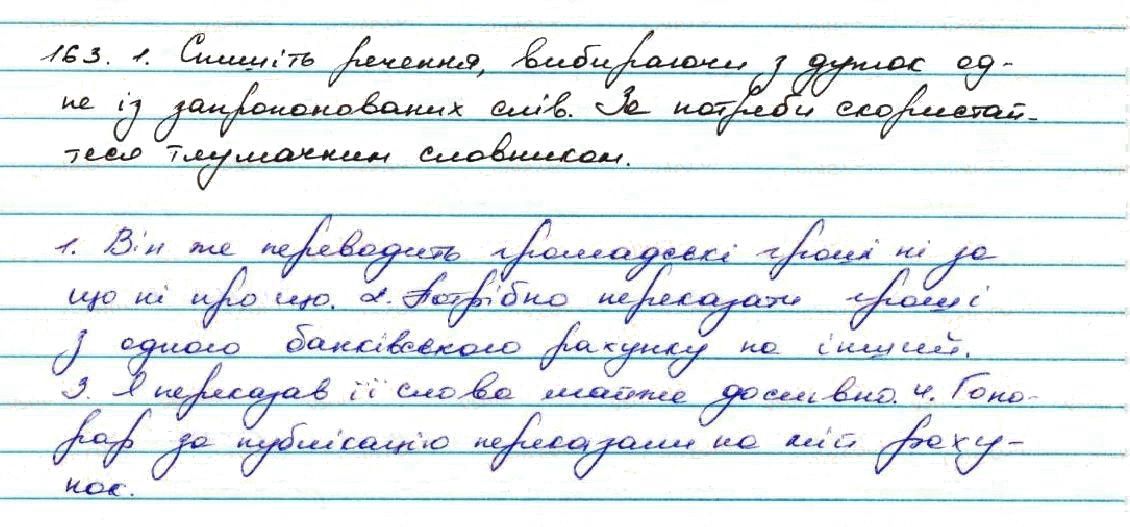 163. 1. Спишіть речення, вибираючи з дужок од-
не із запропонованих слів. За потреби скористай-
теся тлумачним словником.
1. Він же переводить громадські гроші ні за
що ні про що. 2. Потрібно переказати гроші
з одного банківського рахунку на інший.
3. Я переказав її слова майже дослівно. 4. Гоно-
рар за публікацію переказали на мій раху-
нок.